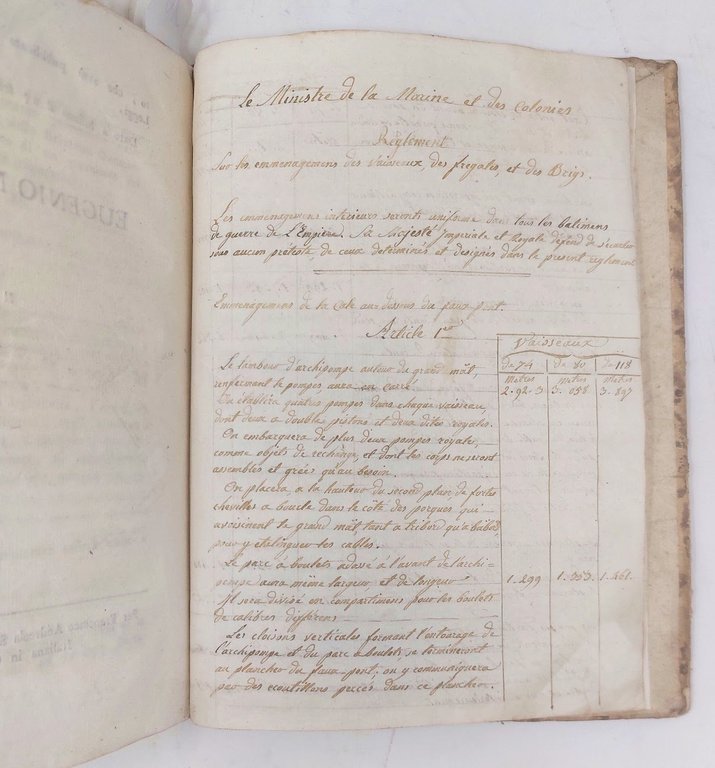 Le Ministre de la Marine et des Colonies
Règlement
Sur les emmenagemens des Vaisseaux, des fregates, et des Brigs.
Les emmenagemens interieurs seront uniforme dans tous les batimens
de guerre de L'Empire. Sa Majesté Imperiale et Royale défend de s'ecarter
sous aucun prétexte de ceux determinés et designés dans le present reglement
Emmenagemens de la Cale au dessous du faux pont.
Article 1er
Vaisseaux
de 74 de 80 de 118
Metres metres metres
Le tambour d'archipompe autour du grand mât,
renfermant te pompes aura en carré 2. 92. 3 3. 058 3. 897
On etablira quatre pompes dans chaque vaisseau,
dont deux a doubles pistons et deux dites royales.
On embarquera de plus deux pompes royale,
comme objets de rechange, et dont les corps ne seront
assemblés et greés qu'au besoin.
On placera a la hauteur du second plan, de fortes
chevilles a boucle dans le côté des porques qui
avoisinent le grand mât tant a tribord qu'a babord,
pour y etalinguer les cables.
Le parc à boulets adossé à l'avant de l'archi-
pompe aura même largeur et de longueur 1. 299 1. 353. 1. 461.
Il sera divisé en compartimens pour les boulets
de calibres differens
Les cloisons verticales formant l'entourage de
l'archipompe et du parc a boulets, se termineront
au plancher du faux pont; on y communiquera
par des ecoutillons percés dans ce plancher.